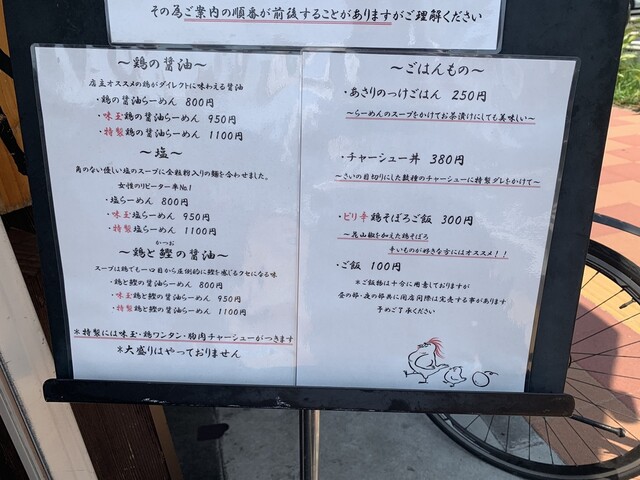 その為ご案内の順番が前後することがありますがご理解ください
～鶏の醤油～
店主オススメの鶏がダイレクトに味わえる醤油
・鶏の醤油らーめん 800円
・味玉鶏の醤油らーめん 950円
・特製鶏の醤油らーめん 1100円
～塩～
角のない優しい塩のスープに全粒粉入りの麺を合わせました。
女性のリピーター率No1
・塩らーめん 800円
・味玉塩らーめん 950円
・特製塩らーめん 1100円
かつお
～鶏と鰹の醤油～
スープは鶏でも一口目から圧倒的に鰹を感じるクセになる味
・鶏と鰹の醤油らーめん 800円
・味玉鶏と鰹の醤油らーめん 950円
・特製鶏と鰹の醤油らーめん 1100円
＊特製には味玉・鶏ワンタン・胸肉チャーシューがつきます
＊大盛りはやっておりません
～ごはんもの～
・あさりのっけごはん 250円
～らーめんのスープをかけてお茶漬けにしても美味しい～
・チャーシュー丼 380円
～さいの目切りにした数種のチャーシューに特製ダレをかけて～
・ピリ辛鶏そぼろご飯 300円
～花山椒を加えた鶏そぼろ
辛いものが好きな方にはオススメ！！
・ご飯 100円
＊ご飯類は十分に用意しておりますが
昼の部・夜の部共に閉店間際は完売する事があります
予めご了承ください